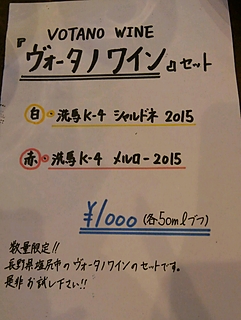 VOTANO WINE
『ヴォータノワイン』セット
白 洗馬K-4 シャルドネ 2015
赤 洗馬K-4 メルロー 2015
¥1000 (各50mlずつ)
数量限定!!
長野県塩尻市のヴォータノワインのセットです。
是非お試し下さい!!